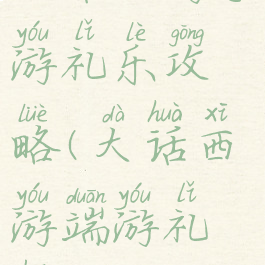 yóu lǐ lè gōng
游礼乐攻
lüè dà huà xī
略(大话西
yóu duān yóu lǐ
游端游礼